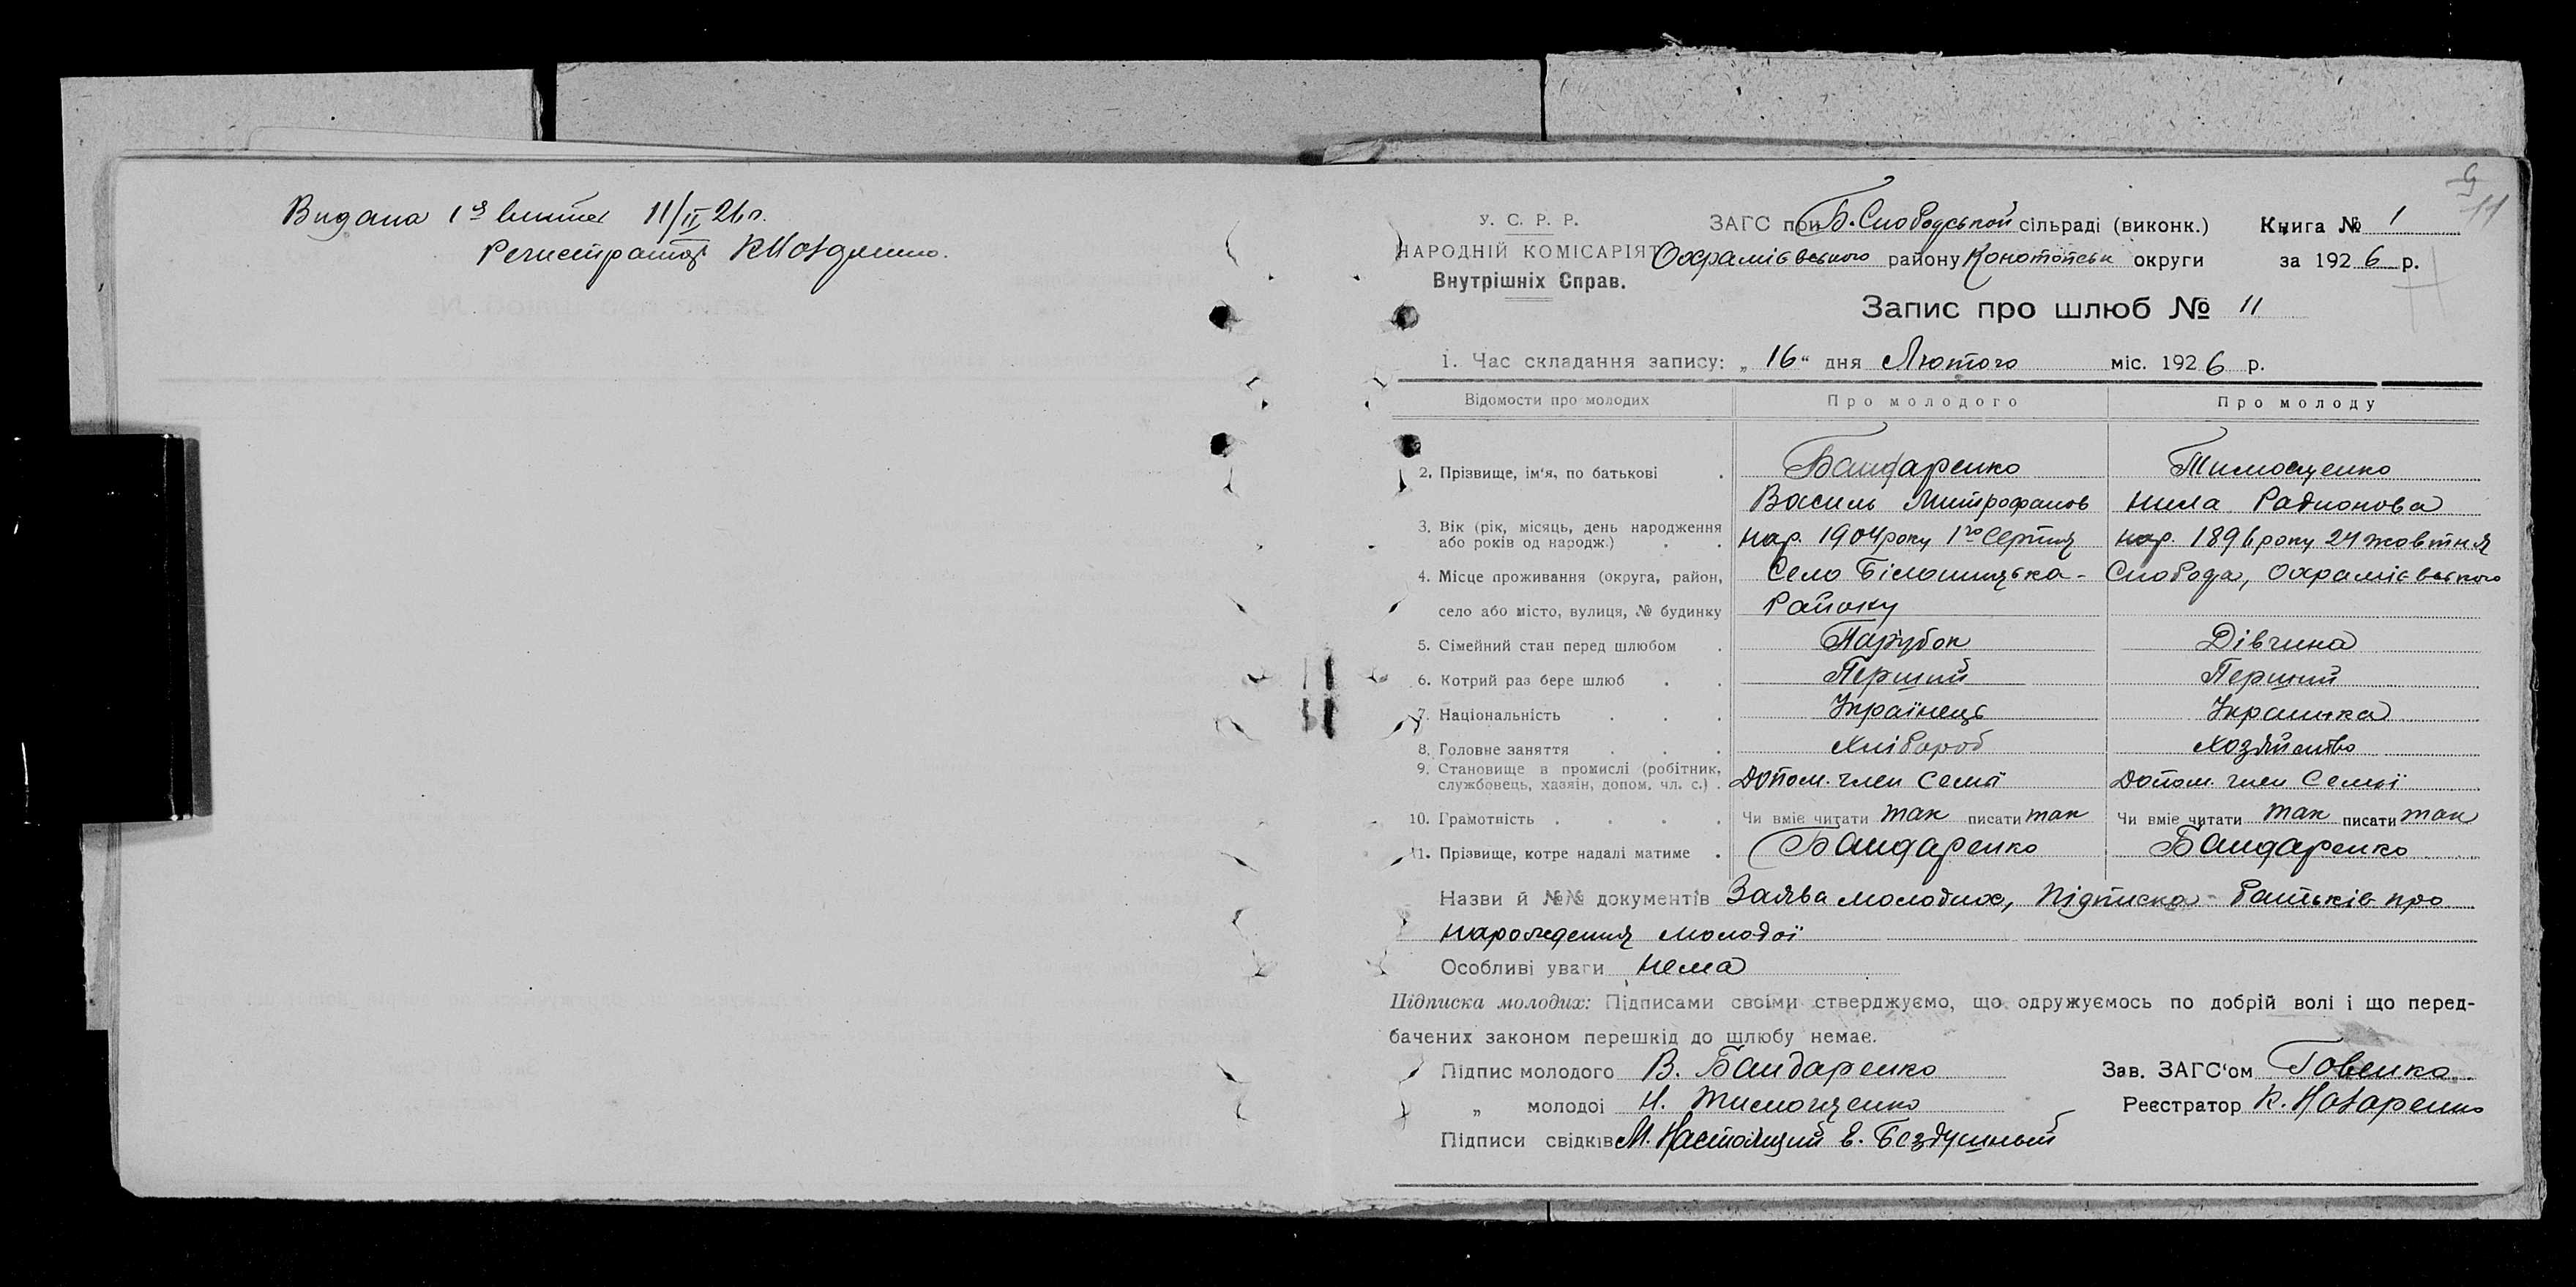 Видана 1я випис 11/II 26 р.
Регистратор
9
11
У. С. Р. Р.
НАРОДНІЙ КОМІСАРІЯТ
Внутрішніх Справ.
ЗАГС при Б. Слободській сільраді (виконк.) Книга № 1
Охраміевського району Конотопськ округи за 1926 р.
Запис про шлюб № 11
1. Час складання запису: „16“ дня Лютого міс. 1926 р.
Відомости про молодих Про молодого Про молоду
2. Прізвище, ім‘я, по батькові . Бандаренко Тимощенко
Василь Митрофанов Нила Радионова
3. Вік (рік, місяць, день народження
або років од народж.) . . нар. 1904 року 1го Серпня нар. 1896 року 24 жовтня
4. Місце проживання (округа, район, Село Білошицька- Слобода, Охраміевського
село або місто, вулиця, № будинку Району
5. Сімейний стан перед шлюбом . Парубок Дівчина
6. Котрий раз бере шлюб . . Перший Перший
7. Національність . . . Українець Украинка
8. Головне заняття . . . Хлібороб Хозяйство
9. Становище в промислі (робітник,
службовець, хазяін, допом. чл. с.) . Допом. член Семьї Допом. член Семьї
10. Грамотність . . . . Чи вміє читати так писати так Чи вміє читати так писати так
11. Прізвище, котре надалі матиме . Бандаренко Бандаренко
Назви й №№ документів Заява молодих, Підписка батьків про
нарождения молодої
Особливі уваги нема
Підписка молодих: Підписами своїми стверджуємо, що одружуємось по добрій волі і що перед-
бачених законом перешкід до шлюбу немає.
Підпис молодого В. Бандаренко Зав. ЗАГС‘ом Говенко
„ молодоі Н. Тимощенко Реєстратор К. Назаренко
Підписи свідків М. Настоящий Е. Бездушный